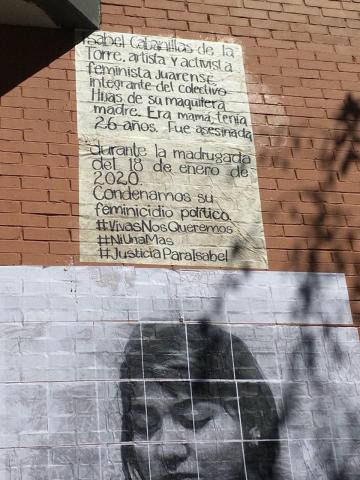 Isabel Cabanillas de la
Torre, artista y activista
feminista juarense
integrante del colectivo
Hijas de su maquilera
madre. Era mamá, tenía
26 años. Fue asesinada
durante la madrugada
del 18 de enero de
2020.
Condenamos su
feminicidio político.
#VivasNosQueremos
#NiUnaMas
#JusticiaParaIsabel